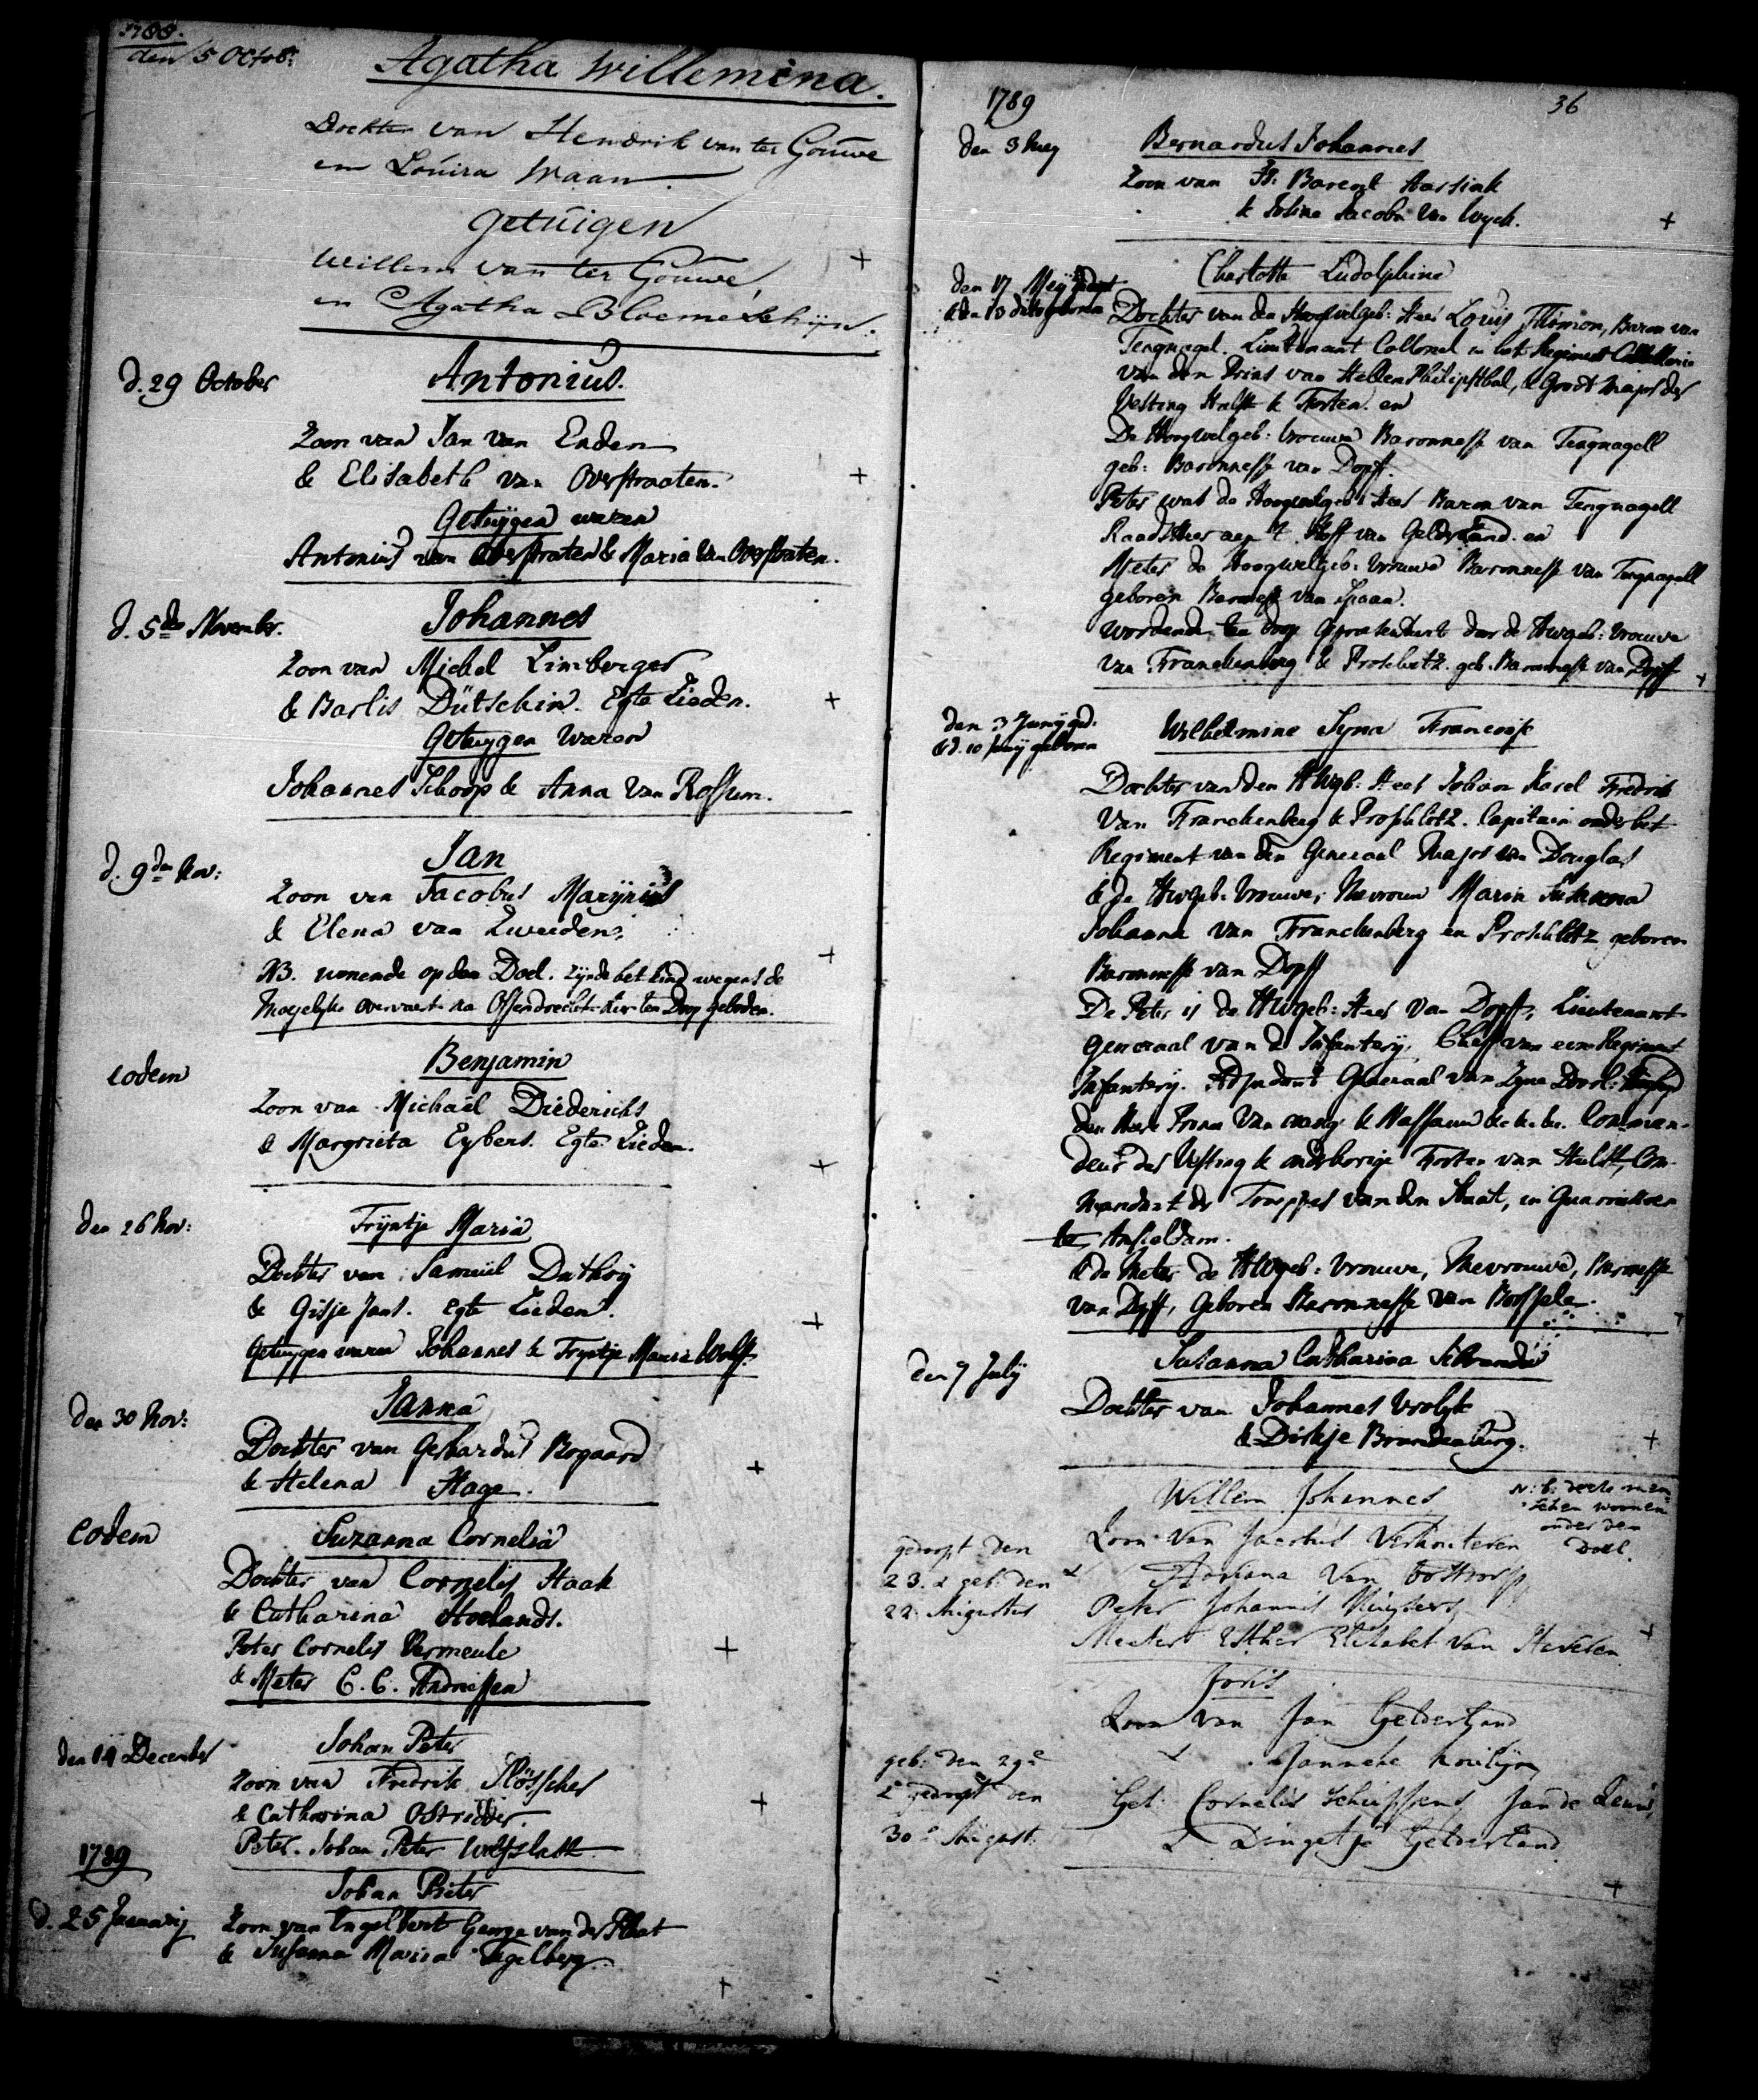 1788.
den 5 Octob:
Agatha Willemina.
Dochter van Hendrik van ter Gouwe
en Louisa Waan.
getuigen
Willem van ter Gouwe,
en Agatha Bloemeschijn.
+
d. 29 October
Antonius.
Zoon van Jan van Enden
& Elisabeth van Overstraaten.
+
Getuygen waren
Antonius van Overstraten & Maria van Overstraten.
d. 5de Novembr.
Johannes
Zoon van Michel Limberger
& Barlis Dütschin. Egte Lieden.
+
Getuygen Waren
Johannes Schoop & Anna Van Rossum.
d. 9de Nov:
Jan
Zoon van Jacobus Marijnis
& Elena van Zweeden.
+
NB. wonende op den Doel. zijnde het kind wegens de
Moeylyke overvaert na Ossendrecht hier ten Doop geboden.
eodem
Benjamin
Zoon van Michaël Diederichs
& Margrieta Eybers. Egte Lieden.
+
den 26 Nov:
Trijntje Maria
Dochter van Samuel Dathoij
& Gisje Jans. egte Lieden.
+
Getuygen waren Johannes & Tryntje Maria Wolff.
den 30 Nov:
Janna
Dochter van Gerhardus Bogaard
& Helena Hage.
+
Eodem
Suzanna Cornelia
Dochter van Cornelis Haak
& Catharina Hoelands.
Peter Cornelis Vermeule
& Meter C. C. Andriessen
+
den 14 December
Johan Peter
Zoon van Fredrik Flösscher
& Catharina Ostridder.
+
Peter. Johan Peter Wolfslach
1789
d. 25 January
Johan Pieter
Zoon van Engelbert George van der Plaat
& Susanna Maria Tegelberg.
+
1789
36
den 3 Mey
Bernardus Johannes
Zoon van Jb: Barent Harsink
& Jolina Jacoba van Wyck.
+
den 17 Mey gedoopt
& den 13 dito geboren
Charlotta Ludolphina
Dochter van den Hoogwelgeb: Heer Louis Thimon, Baron van
Tengnagel. Lieutenant Collonel in het Regiment
van den Prins van Hessen Philipsthal, & Groot Major der
Vesting Hulst & Forten. en
De Hoogwelgeb: Vrouwe Baronnesse van Tengnagell
geb: Baronnesse van Dopff.
Peter was de Hoogwelgeb: Heer Baron van Tengnagell
Raadsheer aen 't Hoff van Gelderland. en
Meter de Hoogwelgeb. Vrouwe Baronnesse van Tengnagell
geboren Baronesse van Spaan.
wordende ten doop gepresenteert door de Hwgeb: Vrouwe
van Franckenberg & Proschlitz. geb. Baronnesse van Dopff
+
den 3 Junij ged.
& d. 10 geboren
Wilhelmine Syna Francoise
Dochter van den HWgb: Heer Johan Karel Fredrik
Van Franckenberg & Proschlitz. Capitain onder het
Regiment van den Generaal Major van Douglas
& de Hwgeb. Vrouwe, Mevrouw Maria Susanna
Johanna van Franckenberg en Proschlitz geboren
Baronnesse van Dopff
De Peter is de HWgeb: Heer Van Dopff, Lieutenant
Generaal van d' Infantery, Cheff van een Regiment
Infantery. Adjudant Generaal van Zyne Doorl:
den Heere Prince Van orange & Nassauw &c &c &c. Comman-
deur der Vesting & onderhorige Forten van Hulst, Com-
mandant der Trouppes van den Staat, in Guarnisoen
te Amsteldam.
& de Meter de HWgeb: Vrouwe, Mevrouwe, Baronesse
van Dopff, Geboren Baronnesse van Borssele.
+
den 7 July
Susanna Catharina
Dochter van Johannes Vrolyk
& Dirkje Brandenburg.
+
Willem Johannes
N:B: deese men-
schen woonen
onder den
Doel.
gedoopt den
23. & geb: den
22. Augustus
Zoon van Jacobus Verhouteren
& Adriana Van Oostdorp
Peter Johannis Kuysters
Meeter Esther Elisabet van Heveren
+
Joris
Zoon van Jan Gelderland
& Janneke
geb: den 29e
& gedoopt den
30e August:
Get: Cornelis Schipsens Jan de Leeuw,
& Dingetje Gelderland
+